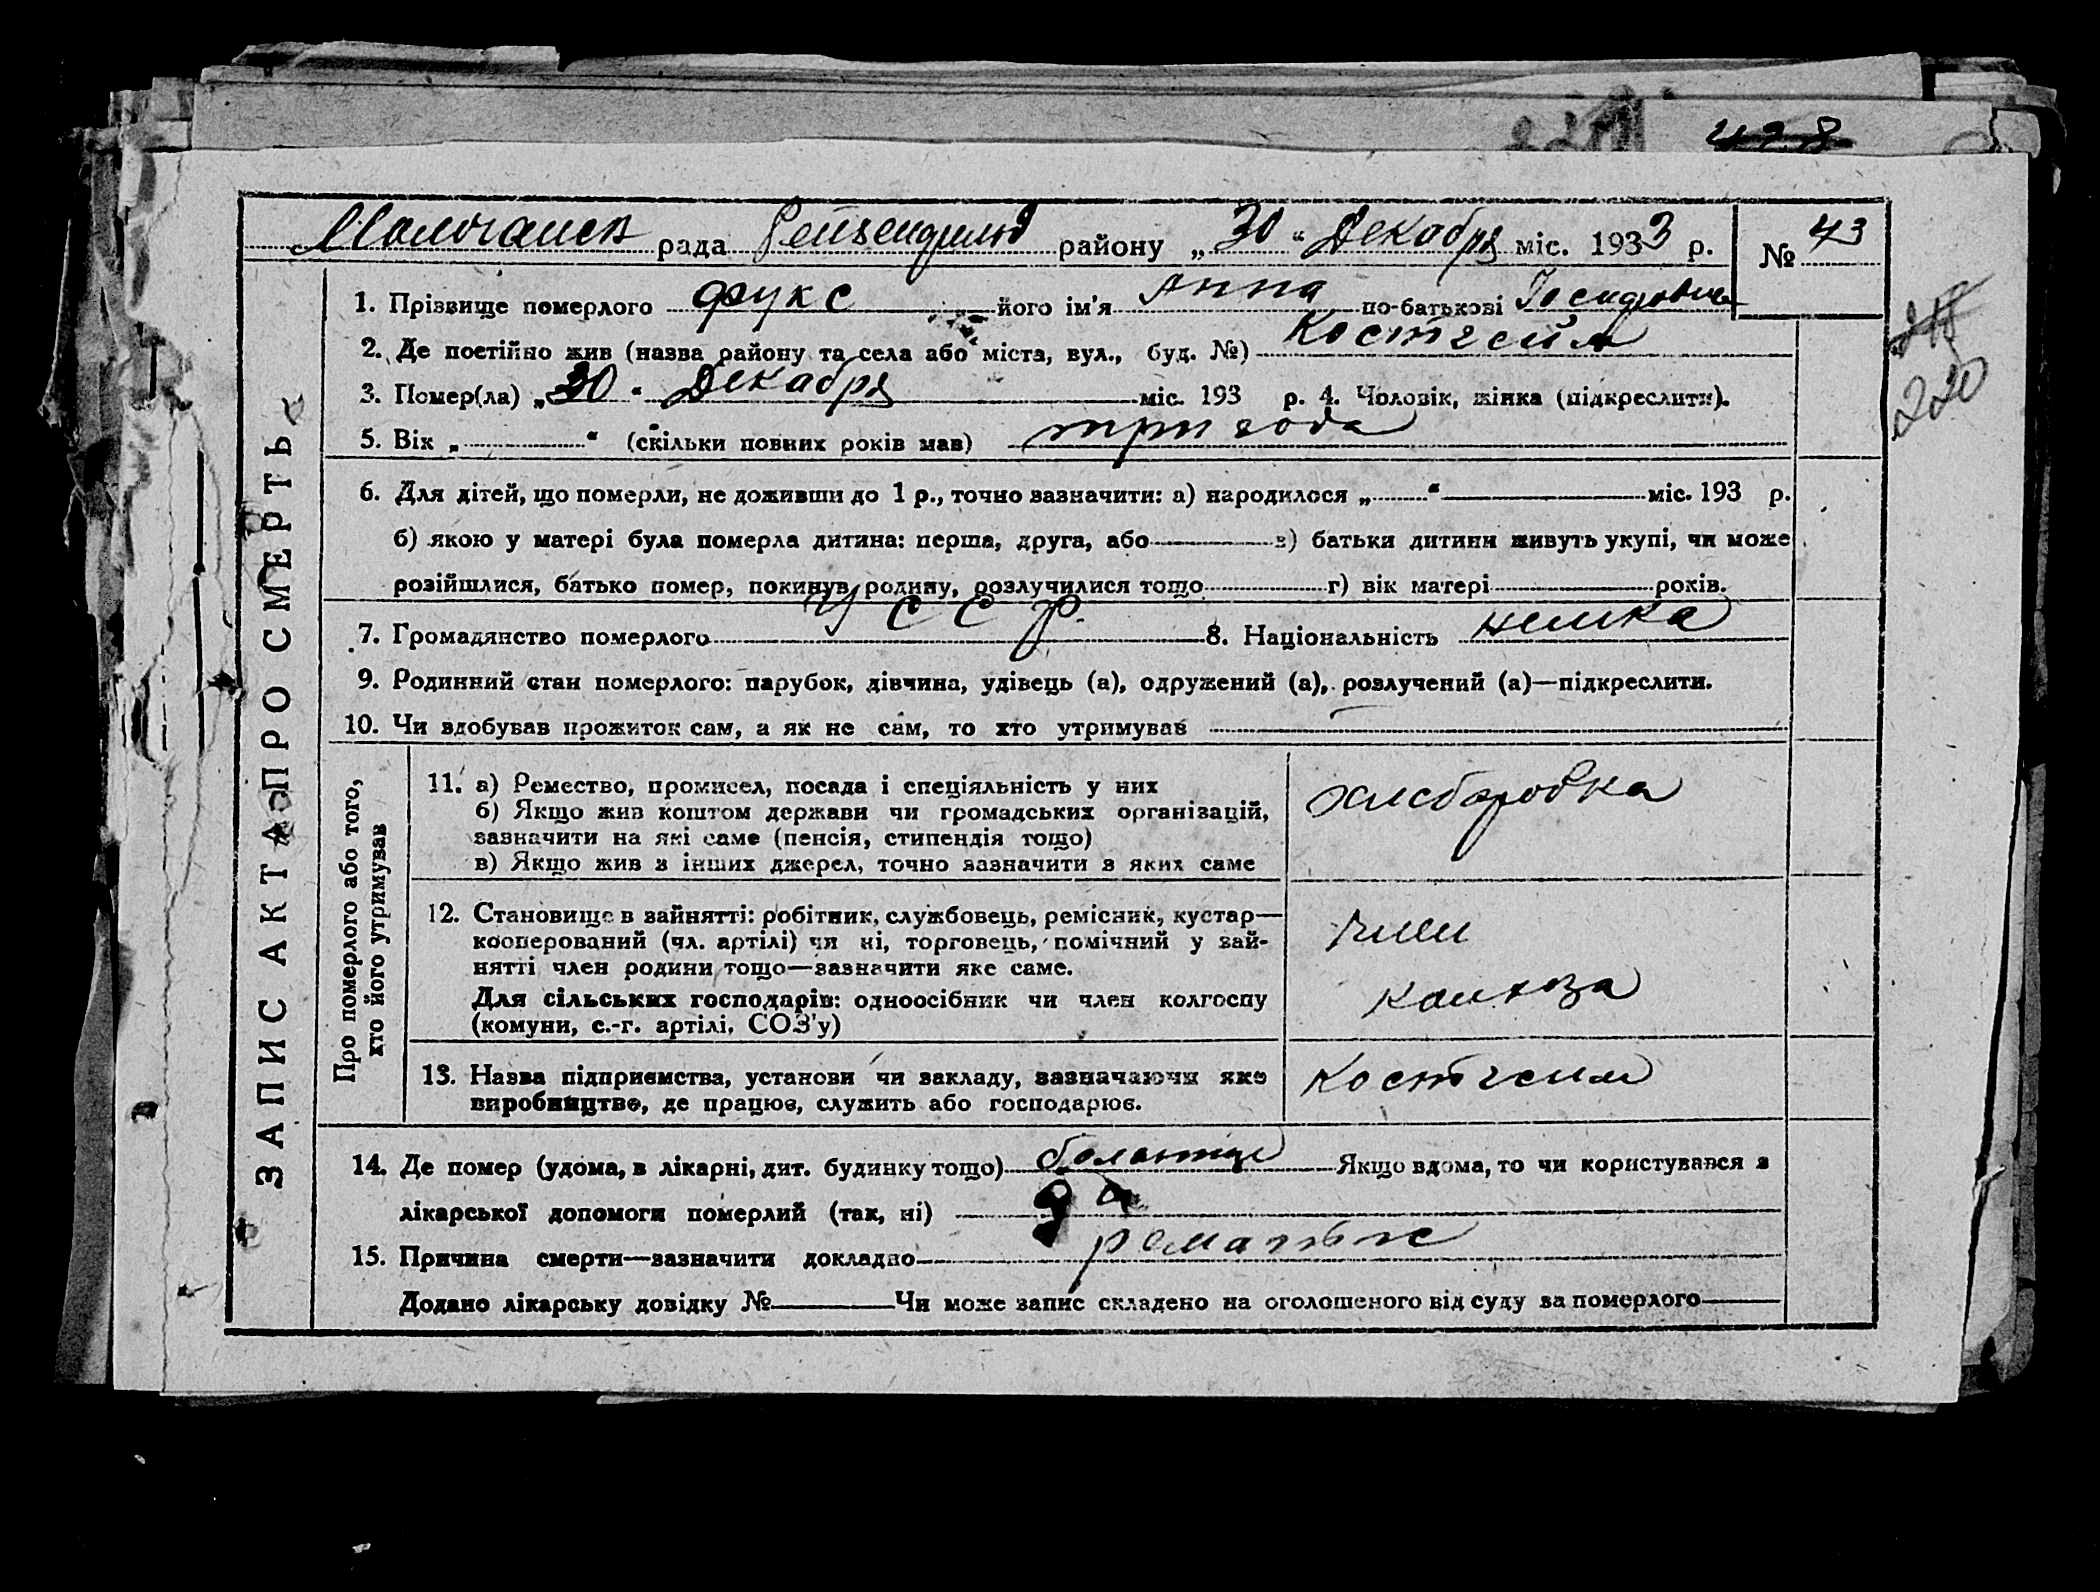 428
Молочанск рада Рейхенфельд району „30“ Декабря міс. 1933 р. № 43
1. Прізвище померлого Фукс його ім'я Анна по-батькові
2. Де постійно жив (назва району та села або міста, вул., буд. №) Костгейм
3. Помер(ла) „30“ Декабря міс. 193 р. 4. Чоловік, жінка (підкреслити).
220
5. Вік „ “ (скільки повних років мав) три года
6. Для дітей, що померли, не доживши до 1 р., точно зазначити: а) народилося „ “ міс. 193 р.
б) якою у матері була померла дитина: перша, друга, або в) батьки дитини живуть укупі, чи може
розійшлися, батько помер, покинув родину, розлучилися тощо г) вік матері років.
7. Громадянство померлого УССР. 8. Національність немка
9. Родинний стан померлого: парубок, дівчина, удівець (а), одружений (а), розлучений (а)—підкреслити.
10. Чи здобував прожиток сам, а як не сам, то хто утримував
ЗАПИС АКТА ПРО СМЕРТЬ
Про померлого або того,
хто його утримував
11. а) Ремество, промисел, посада і спеціяльність у них
б) Якщо жив коштом держави чи громадських організацій,
зазначити на які саме (пенсія, стипендія тощо)
в) Якщо жив з інших джерел, точно зазначити з яких саме
хлеборобка
12. Становище в зайнятті: робітник, службовець, ремісник, кустар—
кооперований (чл. артілі) чи ні, торговець, помічний у зай-
нятті член родини тощо—зазначити яке саме.
Для сільських господарів: одноосібник чи член колгоспу
(комуни, с.-г. артілі, СОЗ'у)
член
колхоза
13. Назва підприємства, установи чи закладу, зазначаючи яке
виробництво, де працює, служить або господарює.
Костгейм
14. Де помер (удома, в лікарні, дит. будинку тощо) Якщо вдома, то чи користувався з
лікарської допомоги померлий (так, ні) да
15. Причина смерти—зазначити докладно
Додано лікарську довідку № Чи може запис складено на оголошеного від суду за померлого